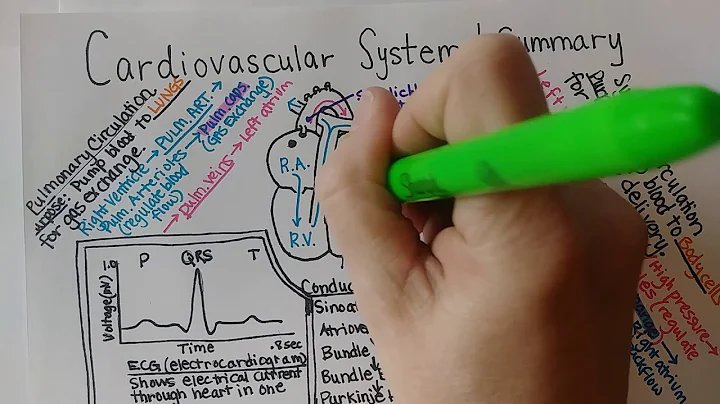 Cardiovascular System Summary
Pulmonary Circulation
Pump blood to LUNGS
for gas exchange.
Right ventricle → PULM. ART →
Pulm. Arterioles → Pulm. caps.
(regulate blood (Gas exchange)
flow)
→ Pulm. veins → Left atrium
R.A.
R.V.
Left
for
culation
blood to Body cells
delivery.
High pressure →
(regulate
Right atrium
1.0
P QRS T
Voltage (mV)
Time .8sec
ECG (electrocardiogram)
Shows electrical current
through heart in one
Conduc
Sinoat
Atriove
Bundle
Bundle
Purkinje